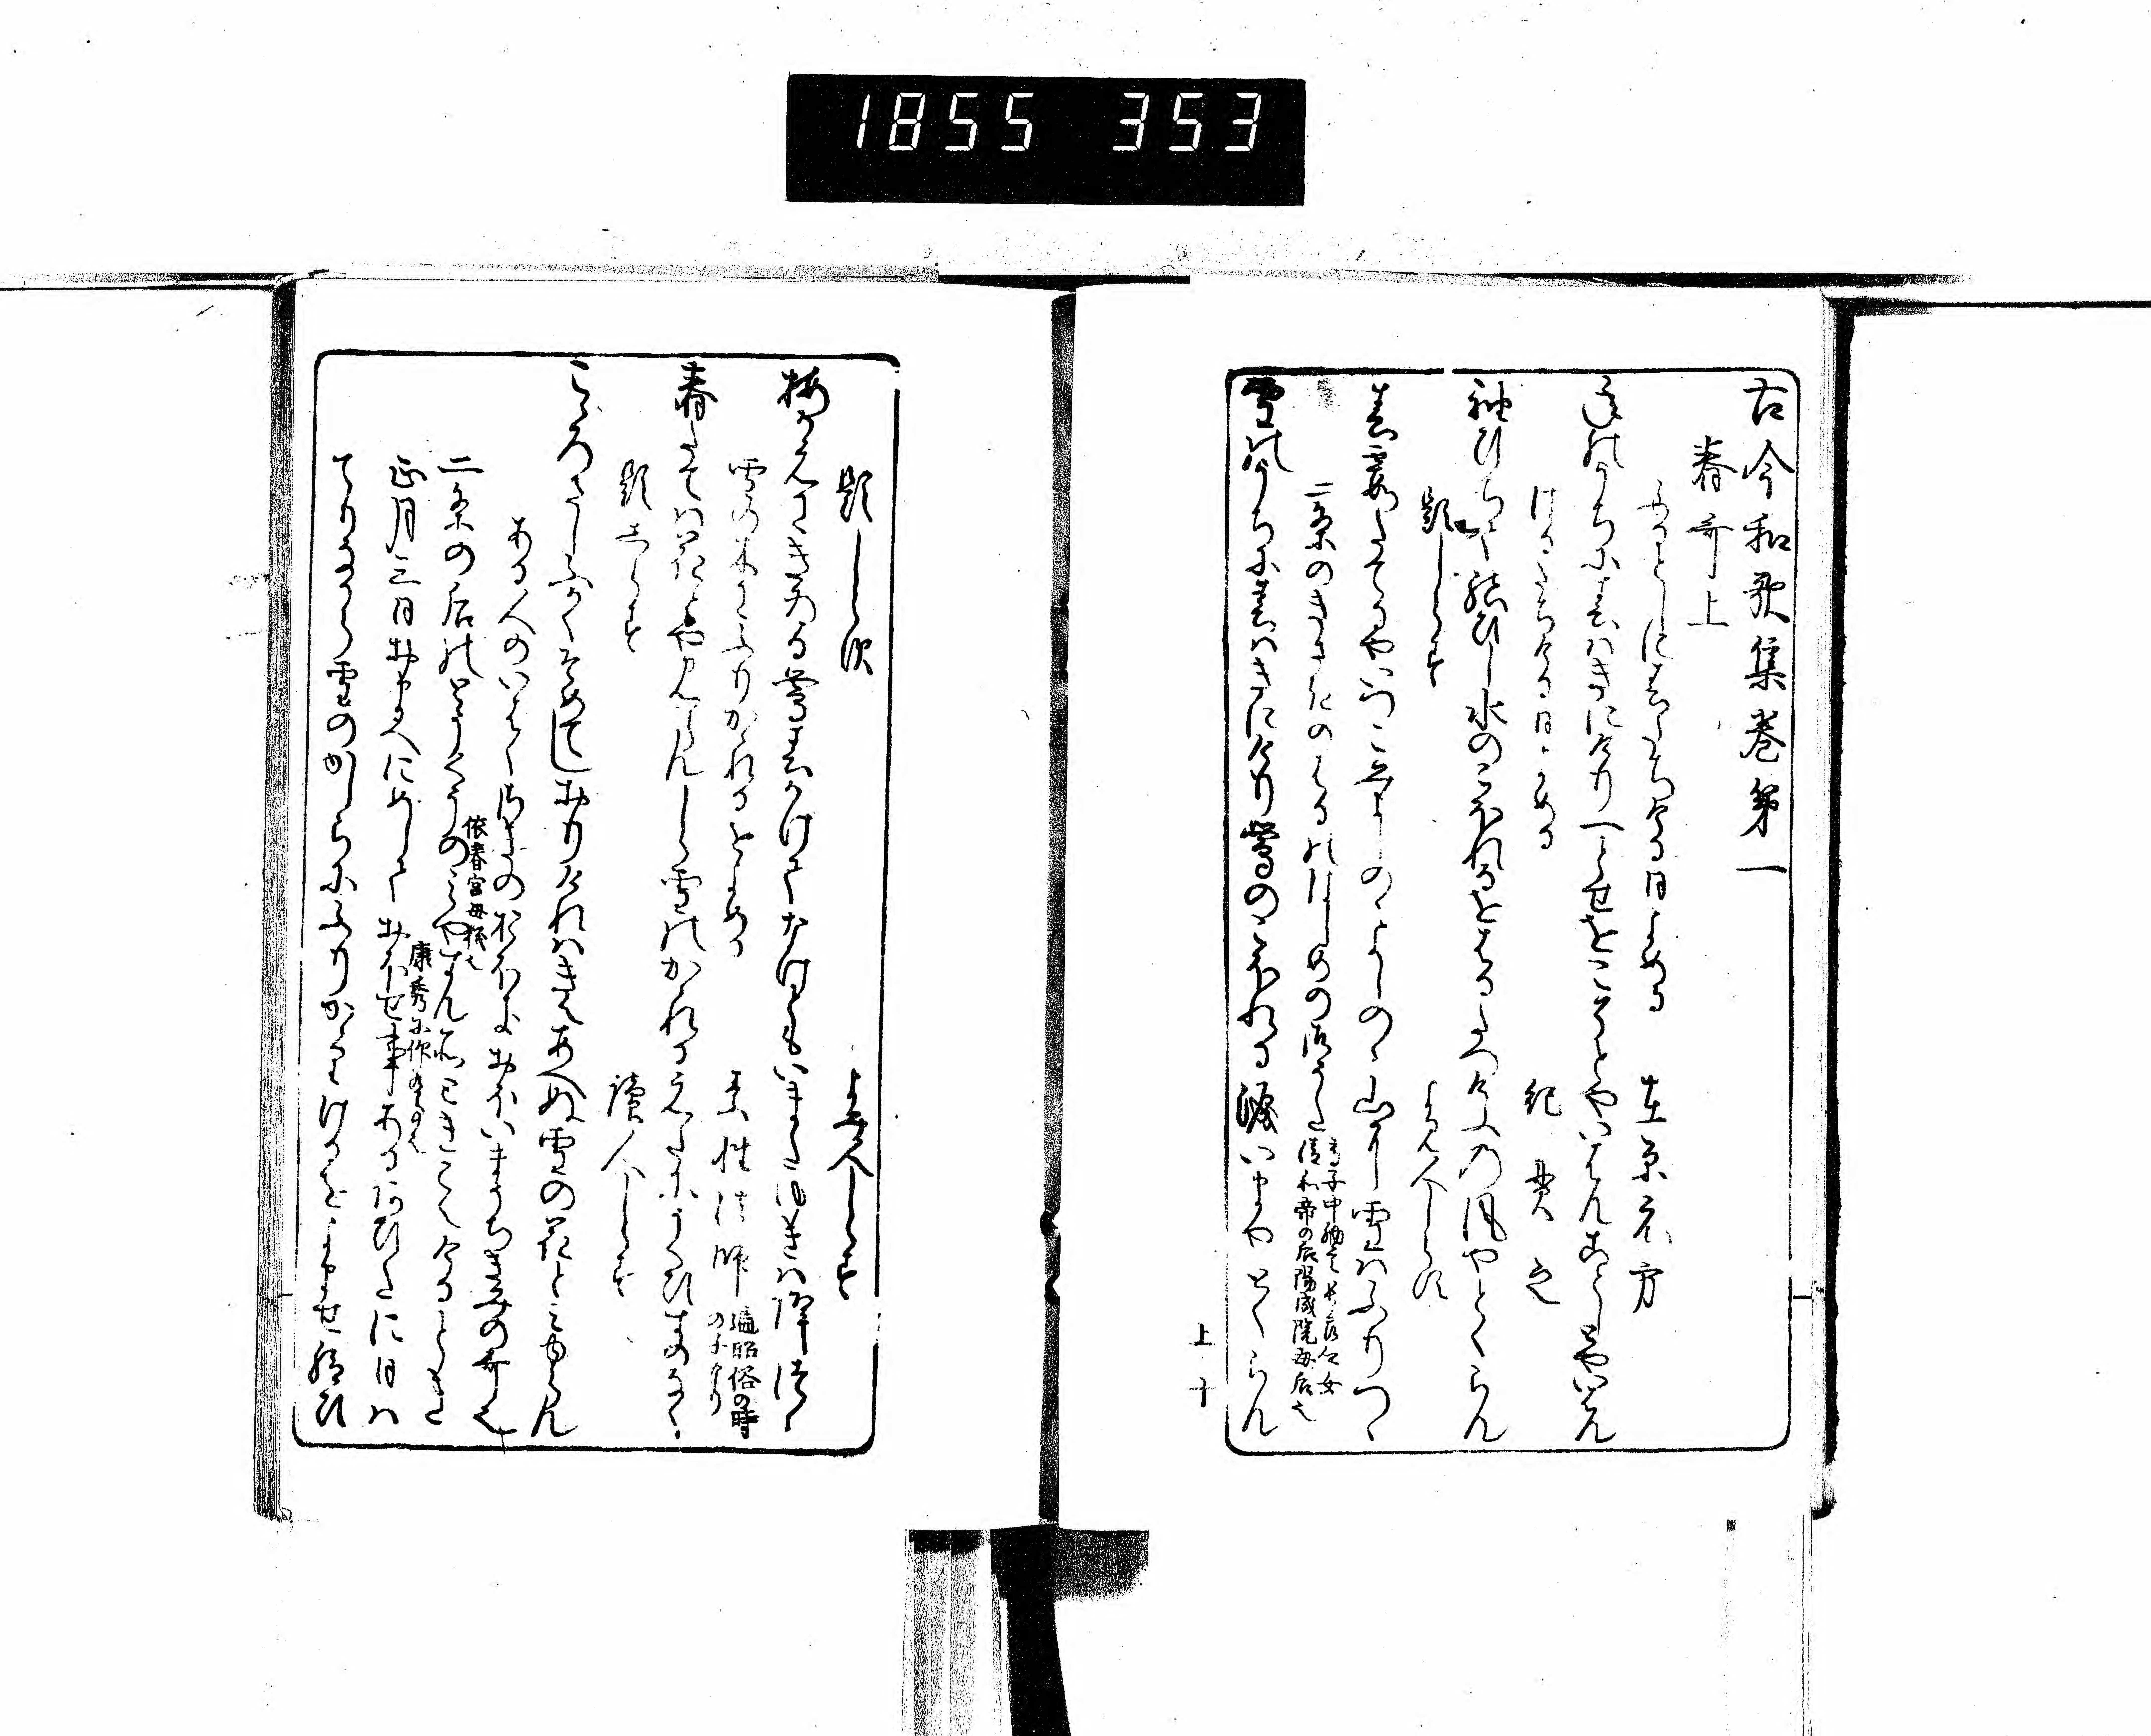 1855 353
古今和歌集巻第一
春哥上
ふるとしに春たちける日よめる 在原元方
年のうちに春はきにけり一とせをこそとやいはんことしとやいはん
はるたちける日よめる 紀貫之
袖ひちて結ひし水のこほれるをはるたつけふの風やとくらん
題しらす よみ人しらす
春霞たてるやいつこみよしのゝよしのゝ山に雪はふりつゝ
二条のきさきのはるのはしめの御うた
清和帝の后陽成院母后也
雪のうちに春はきにけり鶯のこほれる涙いまやとくらん
上ノ十
題しらす よみ人しらす
梅かえにきゐる鶯春かけてなけともいまた雪は降つゝ
雪の木にふりかゝれるをよめる 素性法師
遍昭俗の時
の子なり
春たては花とや見らんしら雪のかゝれるえたにうくひすのなく
題しらす 読人しらす
こゝろさしふかくそめてしおりけれはきえあへぬ雪の花とみゆらん
ある人のいはくさきのおほきおほいまうちきみの哥也
二条の后のとうくうのみやすん所ときこえける時
依春宮母儀也
正月三日おまへにめしておほせ事あるあひたに日は
てりなから雪のかしらにふりかゝりけるをよませ給ひ